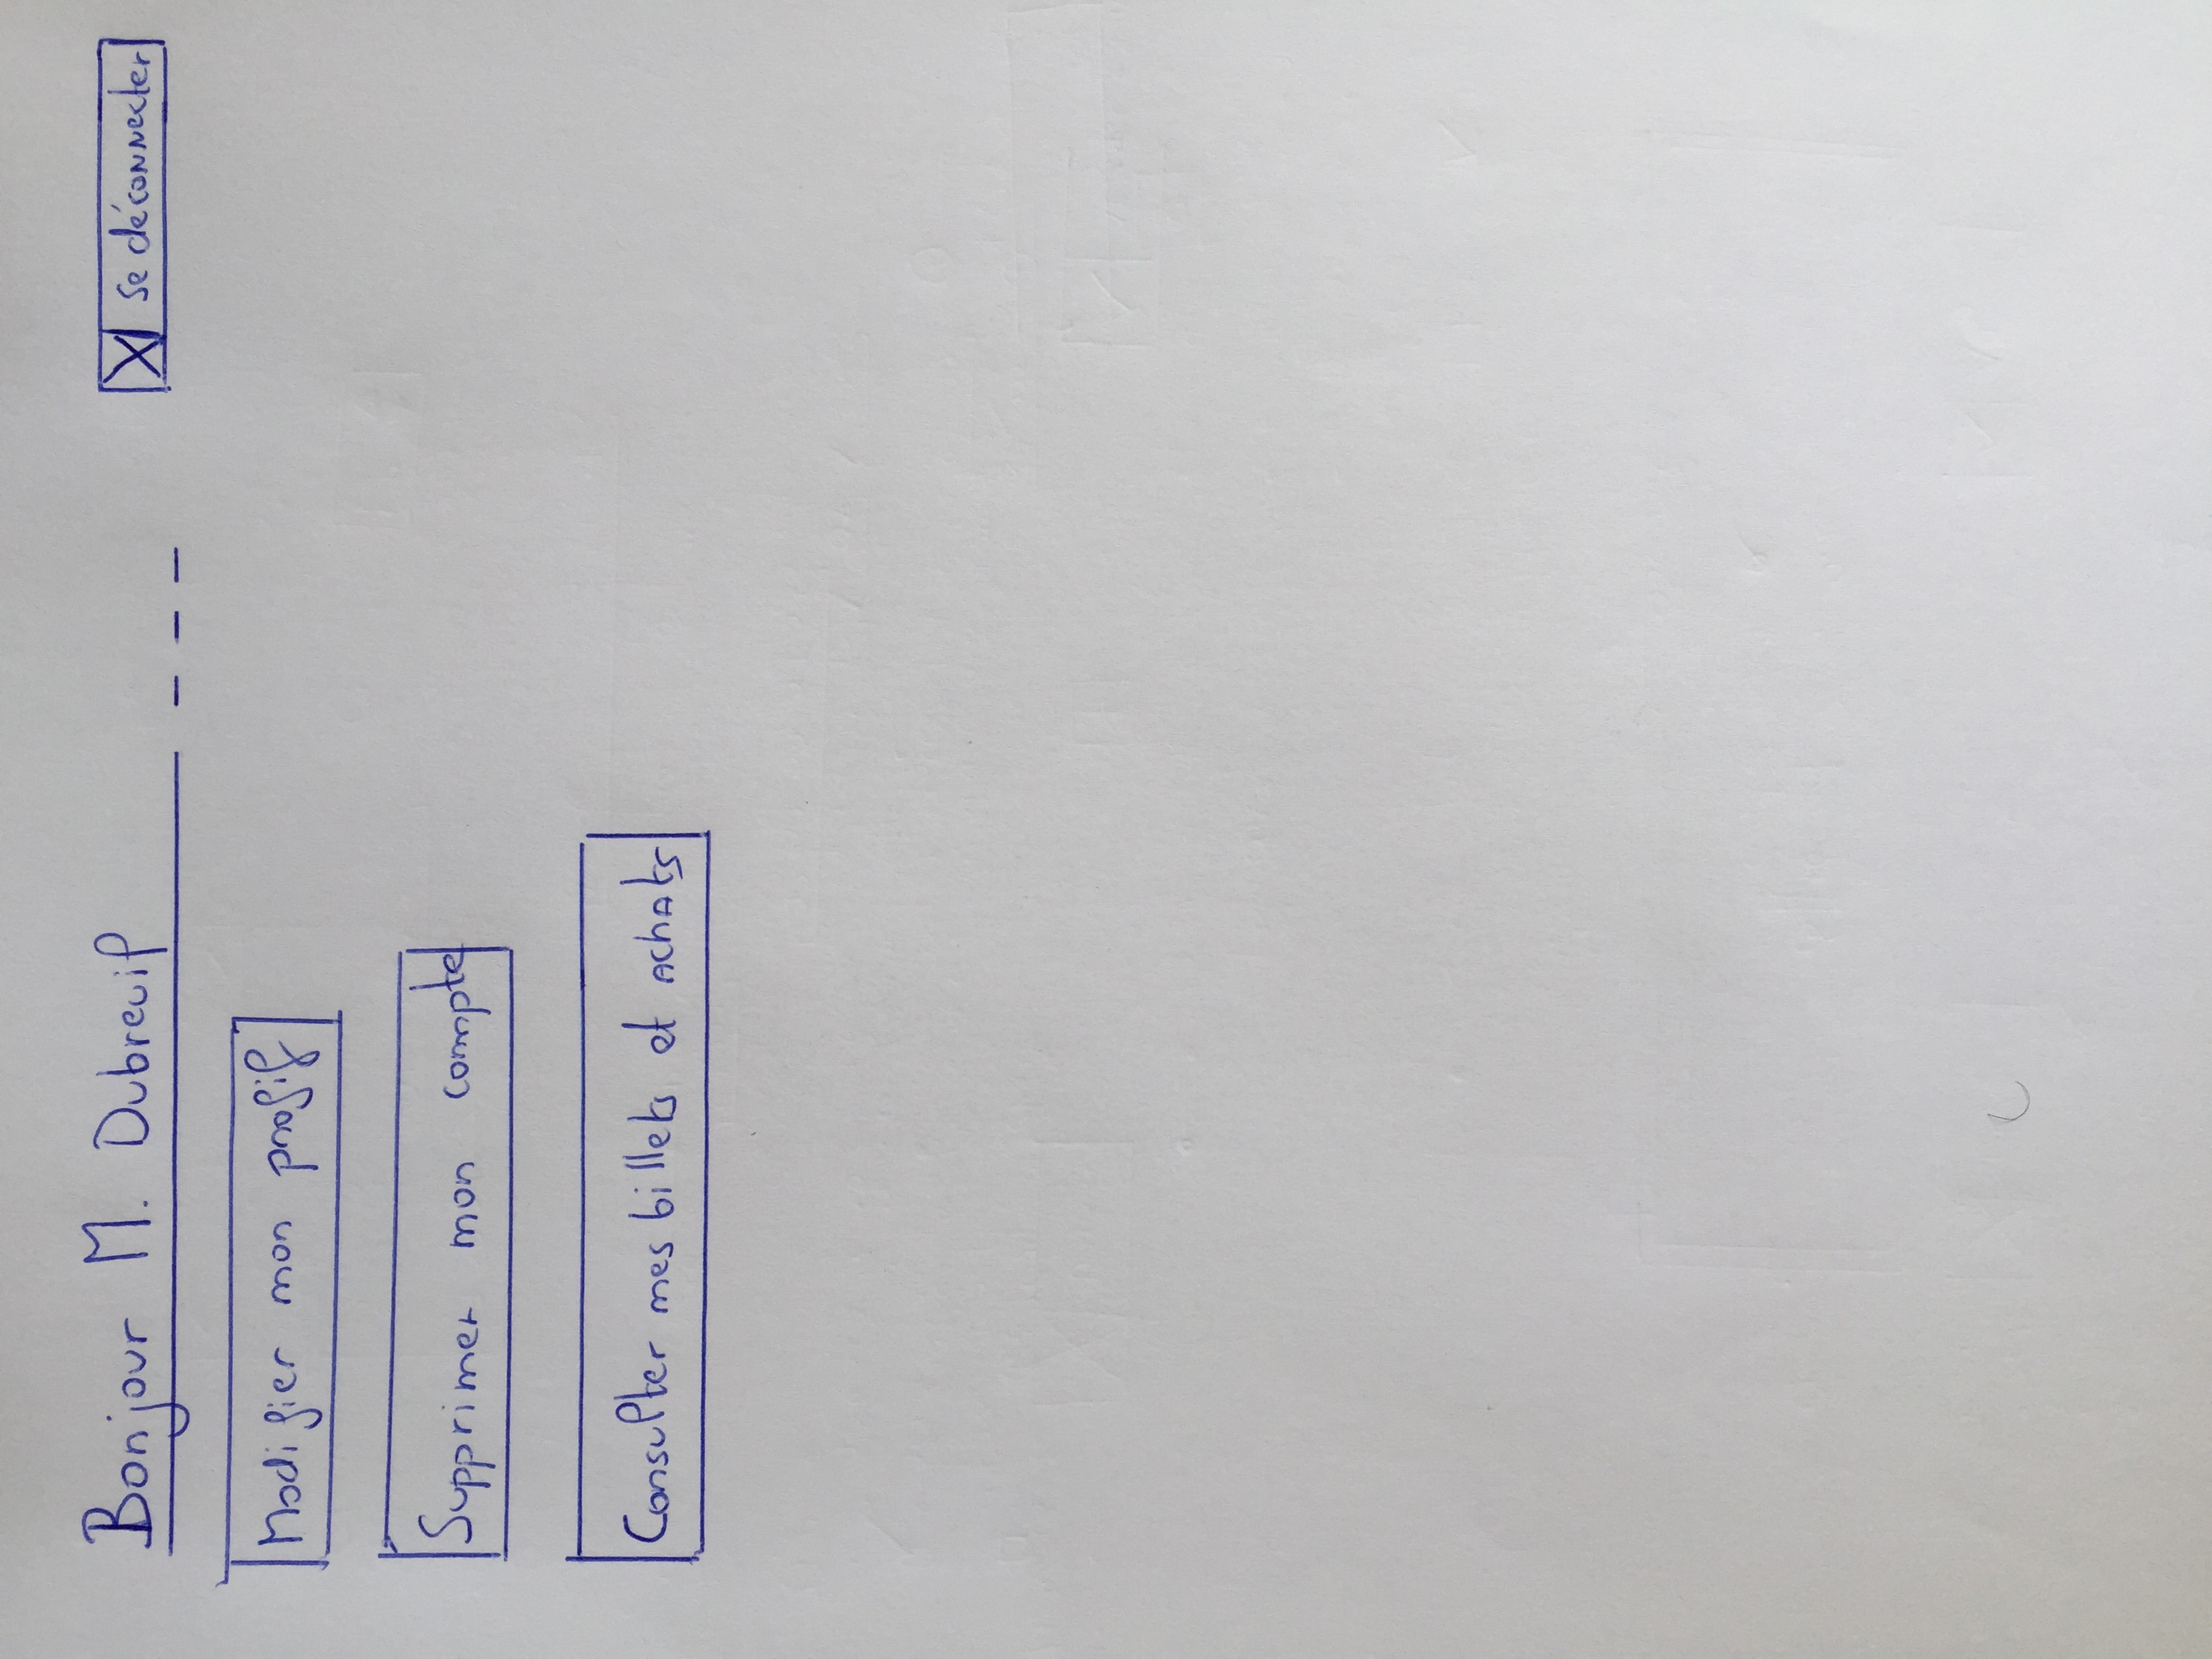 Bonjour M. Dubreuil
X se déconnecter
Modifier mon profil
Supprimer mon compte
Consulter mes billets et achats